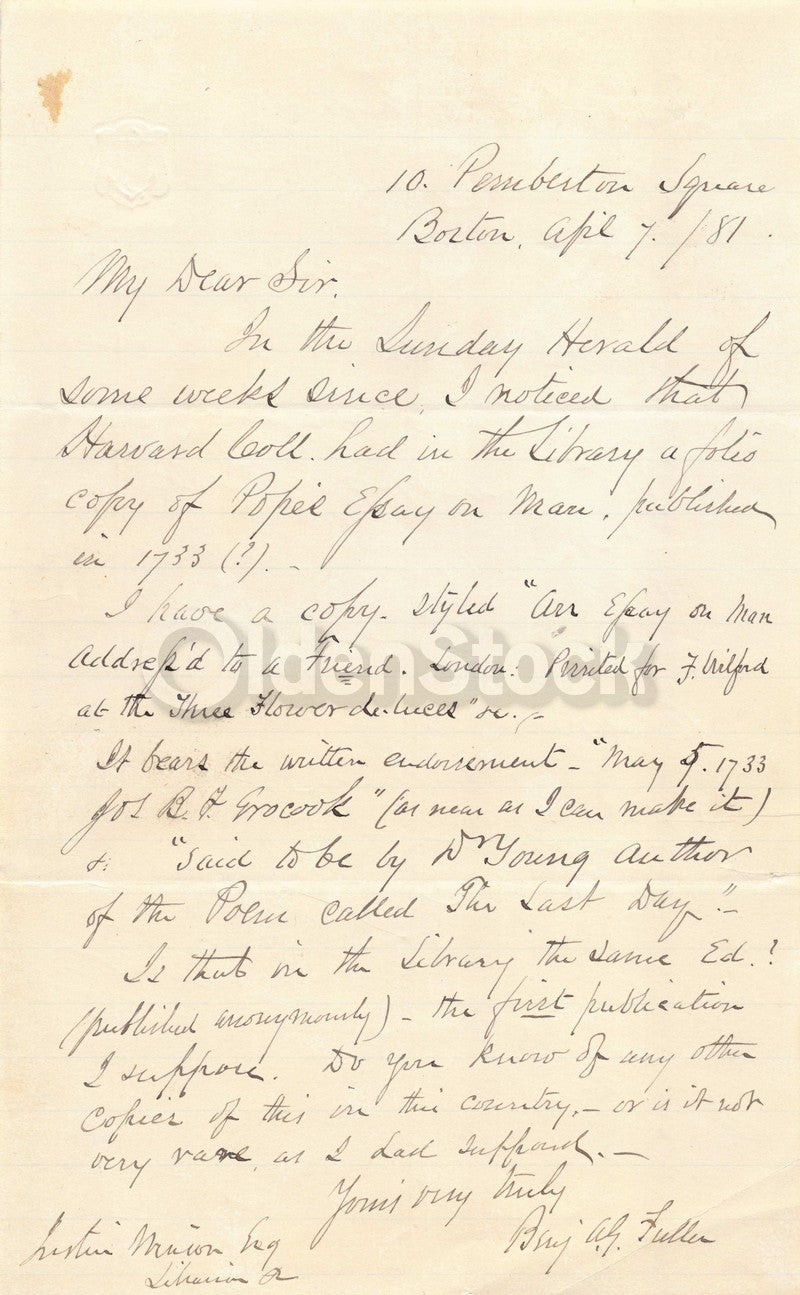 10. Pemberton Square
Boston, Apl 7. /81.
My Dear Sir.
In the Sunday Herald of
some weeks since, I noticed that
Harvard Coll. had in the Library a folio
copy of Pope's Essay on Man, published
in 1733 (?). –
I have a copy. styled "An Essay on Man
Address'd to a Friend. London: Printed for J. Wilford
at the Three Flower de-luces" &c. –
It bears the written endorsement – "May 5. 1733
B. J. Grocook" (as near as I can make it)
&: "Said to be by Dr Young Author
of the Poem called The Last Day." –
Is that in the Library the same Ed.?
(published anonymously) – the first publication
I suppose. Do you know of any other
copies of this in this country, – or is it not
very rare, as I had supposed. –
Yours very truly
Benj A.G. Fuller
Justin Winsor Esq
Librarian &c
OldenStock